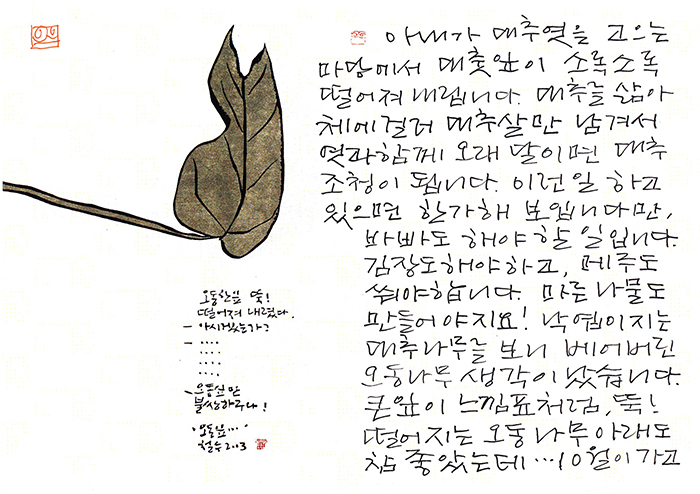 오동한잎 뚝!
떨어져 내렸다.
- 아시겠는가?
- ....
....
....
....
- 오동잎만
불쌍하구나!
'오동잎...'
철수 2003
아내가 대추엿을 고으는
마당에서 대춧잎이 소록소록
떨어져 내립니다. 대추를 삶아
체에걸러 대추살만 남겨서
엿과함께 오래 달이면 대추
조청이 됩니다. 이런일 하고
있으면 한가해 보입니다만,
바빠도 해야 할 일입니다.
김장도해야하고, 메주도
쒀야합니다. 마른나물도
만들어야지요! 낙엽이지는
대추나무를 보니 베어버린
오동나무 생각이 났습니다.
큰잎이 느낌표처럼, 뚝!
떨어지는 오동나무아래도
참 좋았는데...10월이 가고